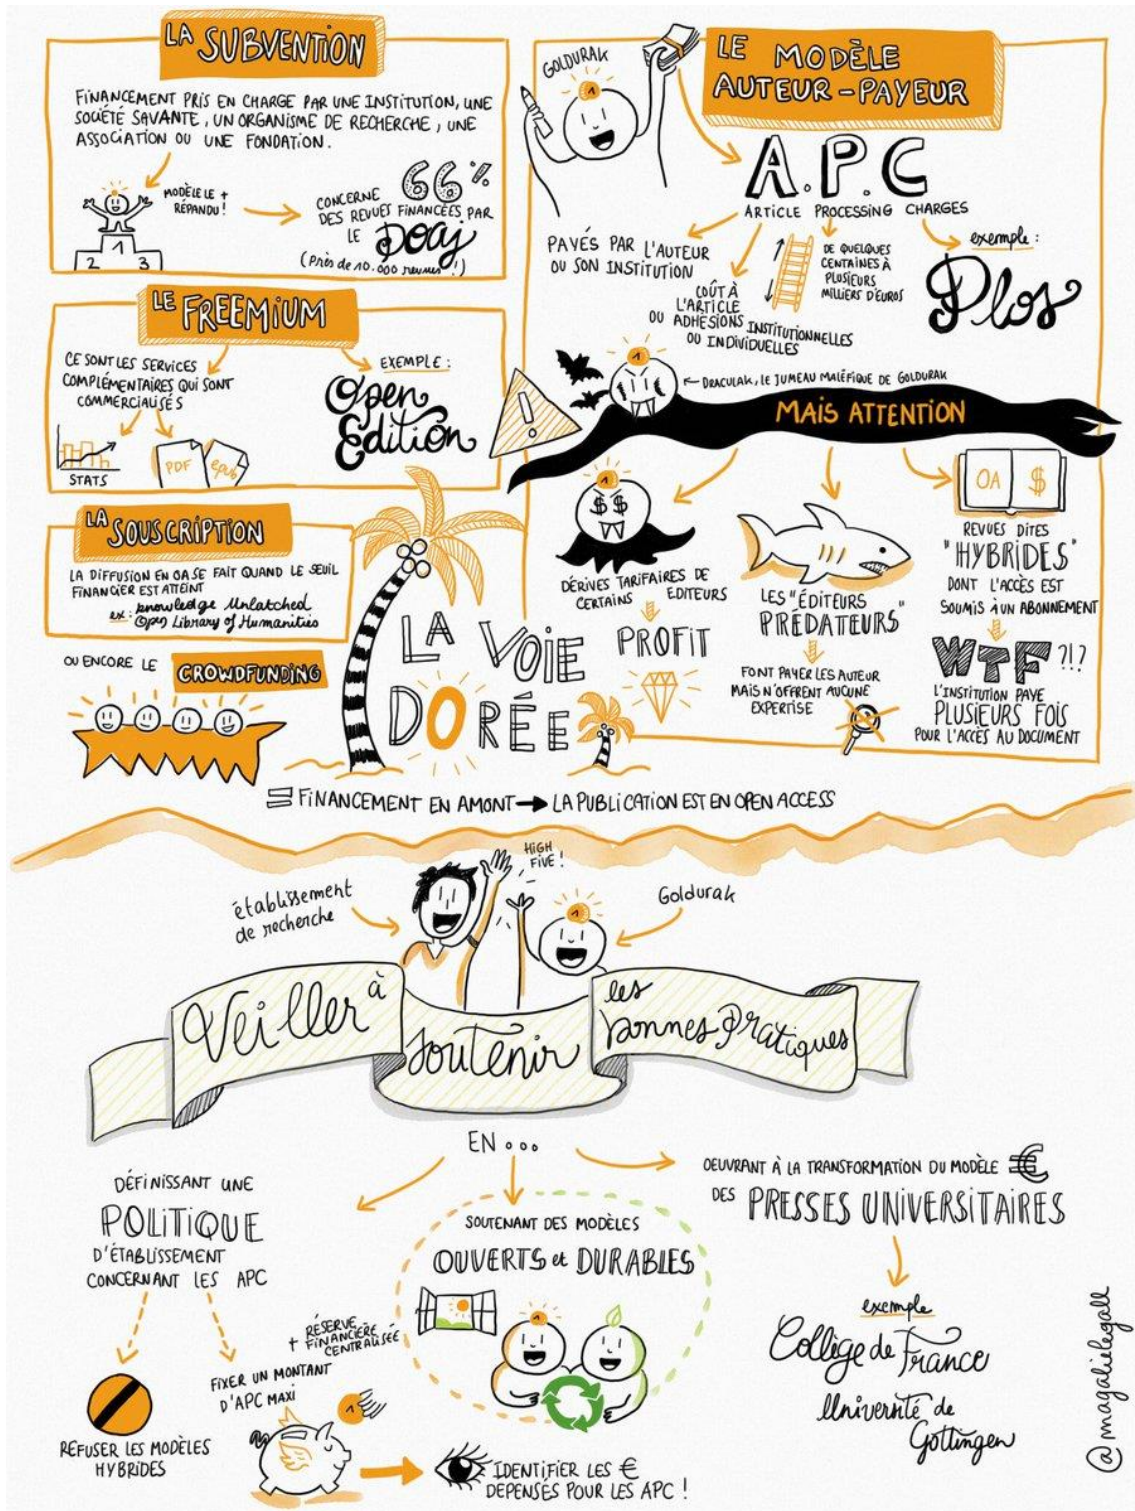 LA SUBVENTION
FINANCEMENT PRIS EN CHARGE PAR UNE INSTITUTION, UNE
SOCIÉTÉ SAVANTE, UN ORGANISME DE RECHERCHE, UNE
ASSOCIATION OU UNE FONDATION.
MODÈLE LE +
RÉPANDU !
1
2
3
CONCERNE 66%
DES REVUES FINANCÉES PAR
LE DOAJ
(Près de 10.000 revues !)
LE FREEMIUM
CE SONT LES SERVICES
COMPLÉMENTAIRES QUI SONT
COMMERCIALISÉS
STATS
PDF
epub
EXEMPLE :
Open
Edition
LA SOUSCRIPTION
LA DIFFUSION EN OA SE FAIT QUAND LE SEUIL
FINANCIER EST ATTEINT
ex : knowledge Unlatched
Open Library of Humanities
OU ENCORE LE CROWDFUNDING
GOLDURAK
1
LE MODÈLE
AUTEUR-PAYEUR
A.P.C
ARTICLE PROCESSING CHARGES
PAYÉS PAR L'AUTEUR
OU SON INSTITUTION
COÛT À
L'ARTICLE
OU ADHÉSIONS INSTITUTIONNELLES
OU INDIVIDUELLES
DE QUELQUES
CENTAINES À
PLUSIEURS
MILLIERS D'EUROS
exemple :
Plos
!
1
DRACULAK, LE JUMEAU MALÉFIQUE DE GOLDURAK
MAIS ATTENTION
1
$ $
DÉRIVES TARIFAIRES DE
CERTAINS EDITEURS
PROFIT
LES "ÉDITEURS
PRÉDATEURS"
FONT PAYER LES AUTEUR
MAIS N'OFFRENT AUCUNE
EXPERTISE
OA $
REVUES DITES
"HYBRIDES"
DONT L'ACCÈS EST
SOUMIS À UN ABONNEMENT
WTF ?!?
L'INSTITUTION PAYE
PLUSIEURS FOIS
POUR L'ACCÈS AU DOCUMENT
LA VOIE
DORÉE
FINANCEMENT EN AMONT → LA PUBLICATION EST EN OPEN ACCESS
HIGH
FIVE !
établissement
de recherche
Goldurak
1
Veiller à
soutenir
les
bonnes Pratiques
EN ...
DÉFINISSANT UNE
POLITIQUE
D'ÉTABLISSEMENT
CONCERNANT LES APC
REFUSER LES MODÈLES
HYBRIDES
FIXER UN MONTANT
D'APC MAXI
+ RÉSERVE
FINANCIÈRE
CENTRALISÉE
1
IDENTIFIER LES €
DÉPENSÉS POUR LES APC !
SOUTENANT DES MODÈLES
OUVERTS et DURABLES
1
OEUVRANT À LA TRANSFORMATION DU MODÈLE €
DES PRESSES UNIVERSITAIRES
exemple
Collège de France
Université de
Gottingen
@magalielegall